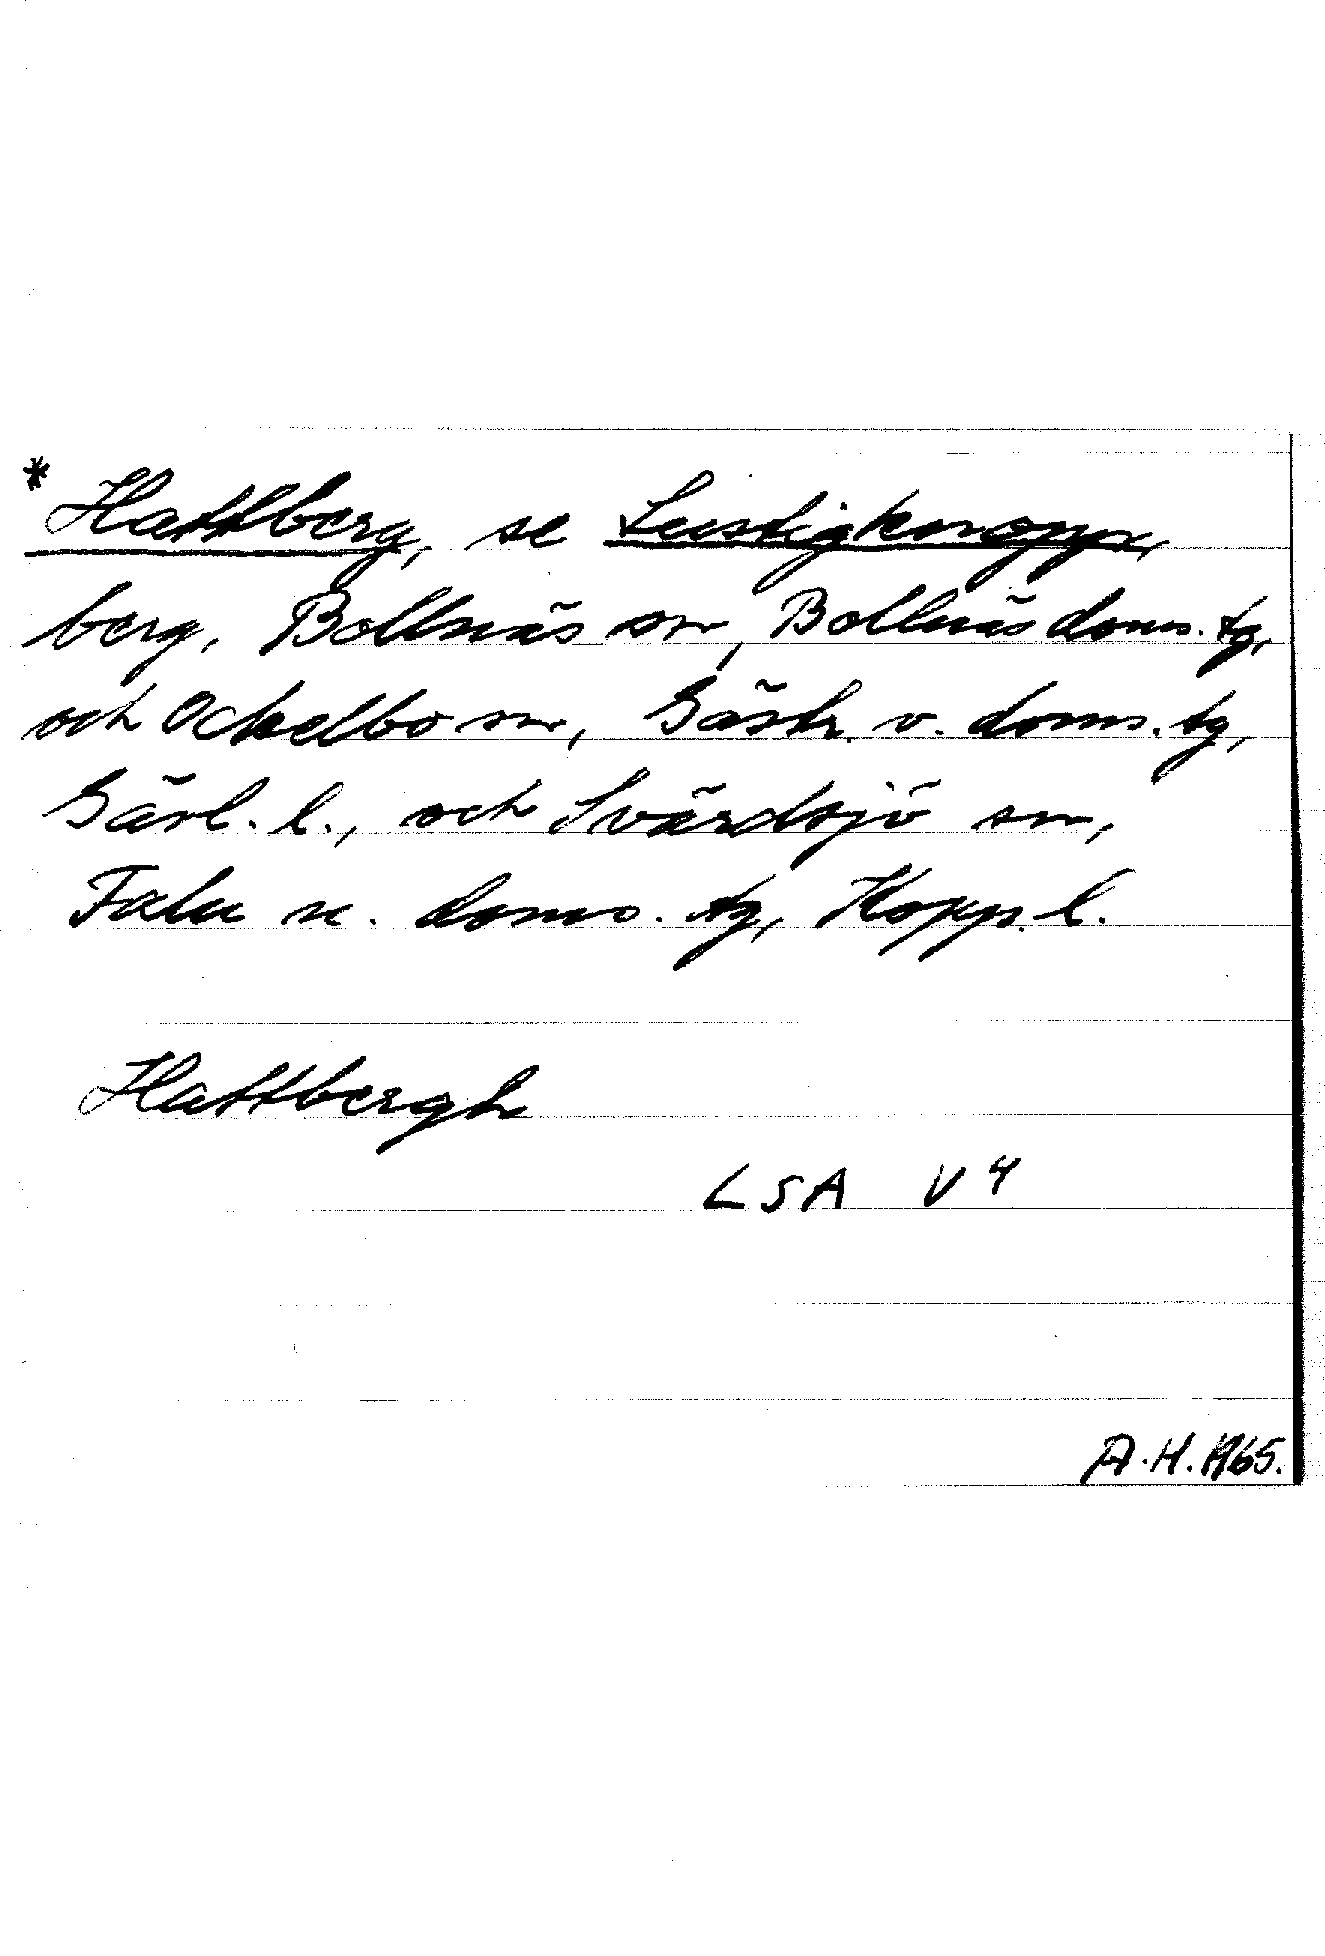 * Hattberg, se Lustigknopp,
berg, Bollnäs sn, Bollnäs doms. tg,
och Ockelbo sn, Gästr. v. doms. tg,
Gävl. l., och Svärdsjö sn,
Falu n. doms. tg, Kopp. l.
Hattbergh
LSA V 4
A.H. 1965.